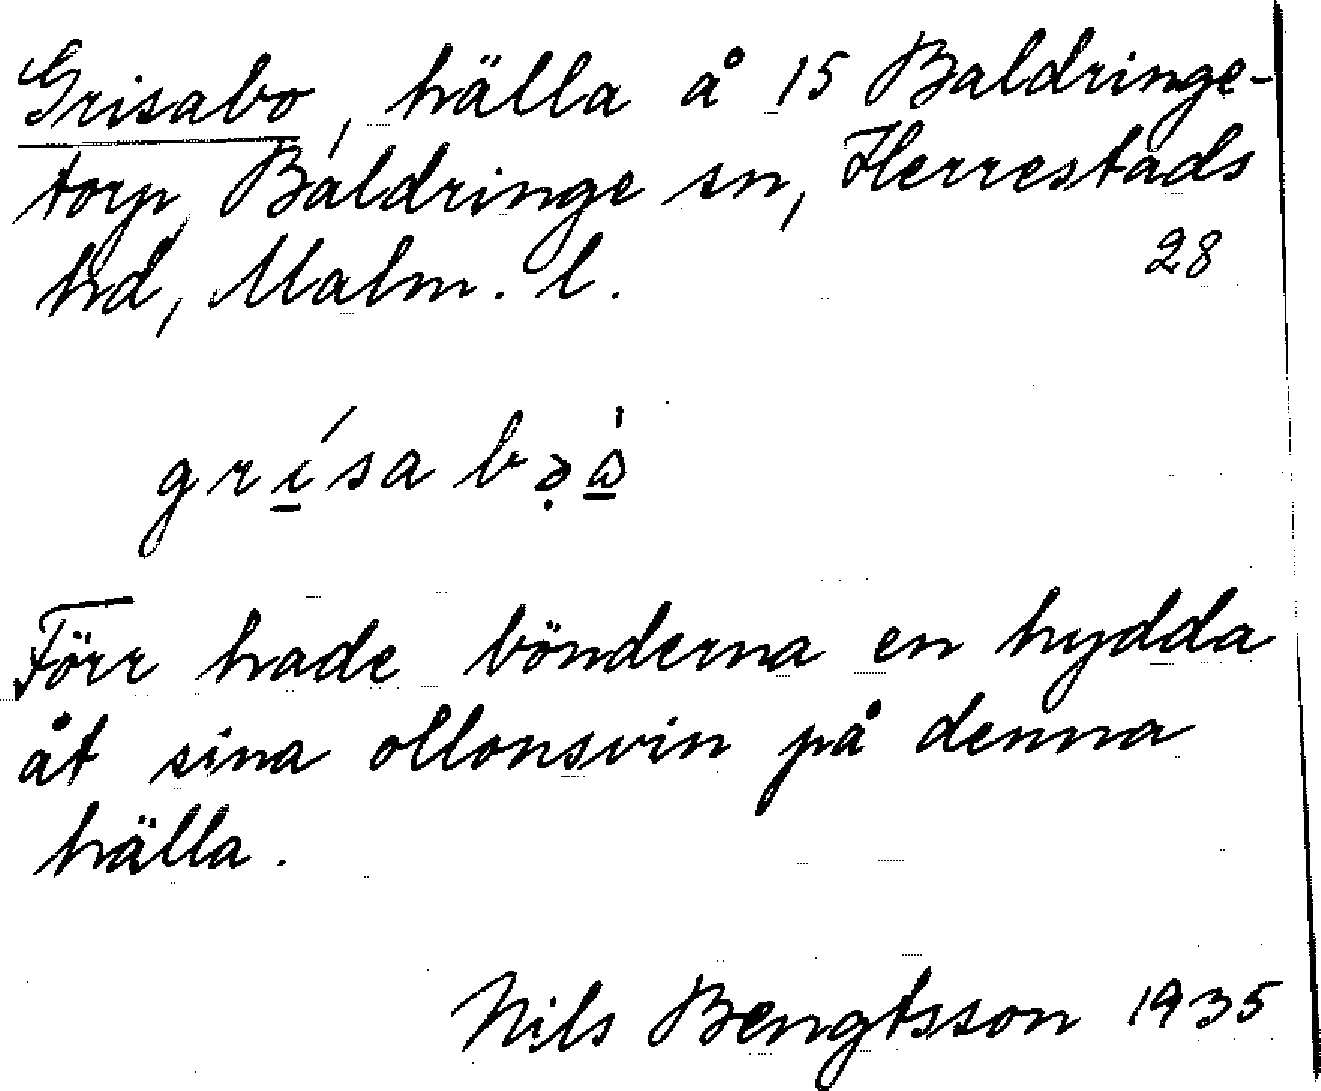 Grisabo, hälla å 15 Baldringe-
torp, Baldringe sn, Herrestads
hd, Malm. l. 28
grísa bə̣ò̱
Förr hade bönderna en hydda
åt sina ollonsvin på denna
hälla.
Nils Bengtsson 1935